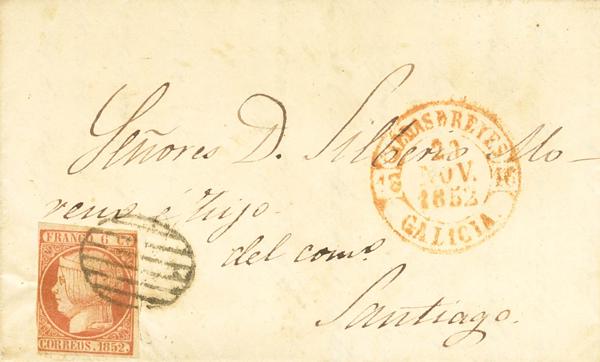 Señores D. Silberio Mo-
reno é Hijo
del como
Santiago.
CALDAS D REYES
23
NOV.
1852
GALICIA
FRANCO 6 Cs
CORREOS. 1852.